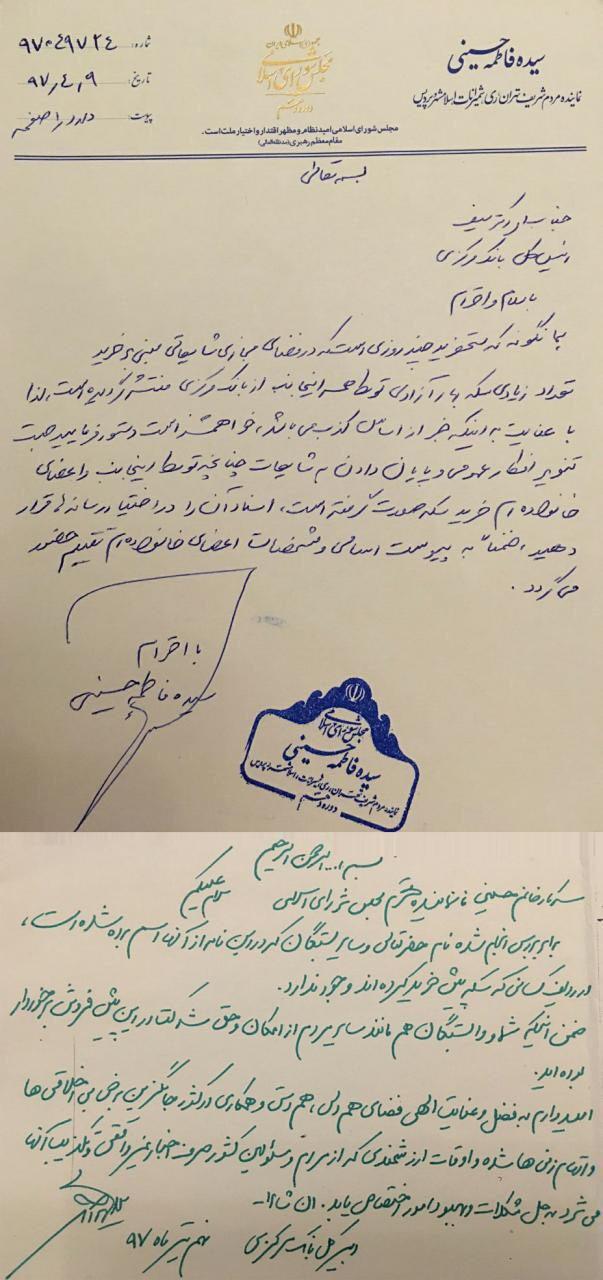 جمهوری اسلامی ایران
مجلس شورای اسلامی
دوره دهم
مجلس شورای اسلامی امید نظام و مظهر اقتدار و اختیار ملت است.
مقام معظم رهبری (مدظله‌العالی)
سیده فاطمه حسینی
نماینده مردم شریف تهران، ری، شمیرانات، اسلامشهر و پردیس
شماره: ۹۷۰۴۹۷۲۴
تاریخ: ۹۷،۴،۹
پیوست: دارد ۱ صفحه
بسمه تعالی
جناب آقای دکتر سیف
رئیس کل بانک مرکزی
با سلام و احترام
همانگونه که مستحضرید چند روزی است که در فضای مجازی شایعاتی مبنی بر خرید
تعداد زیادی سکه بهار آزادی توسط همسر اینجانب از بانک مرکزی منتشر گردیده است، لذا
با عنایت به اینکه خبر از اساس کذب می باشد، خواهشمند است دستور فرمایید جهت
تنویر افکار عمومی و پایان دادن به شایعات چنانچه توسط اینجانب و اعضای
خانواده ام خرید سکه صورت گرفته است، اسناد آن را در اختیار رسانه ها قرار
دهید، ضمناً به پیوست اسامی و مشخصات اعضای خانواده ام تقدیم حضور
می گردد.
با احترام
سیده فاطمه حسینی
مجلس شورای اسلامی
سیده فاطمه حسینی
نماینده مردم شریف تهران، ری، شمیرانات، اسلامشهر و پردیس
دوره دهم
بسم ا... الرحمن الرحیم
سرکار خانم حسینی نماینده محترم مجلس شورای اسلامی
سلام علیکم
برابر بررسی انجام شده نام حضرتعالی و سایر بستگان که در این نامه از آنها اسم برده شده است،
در ردیف کسانی که سکه پیش خرید کرده اند وجود ندارد.
ضمن اینکه شما و وابستگان هم مانند سایر مردم از امکان و حق شرکت در این پیش فروش برخوردار
بوده اید.
امیدوارم به فضل و عنایت الهی فضای هم دلی، هم دستی و همکاری در کشور جایگزین برخی بی اخلاقی ها
و اتهام زنی ها شده و اوقات ارزشمندی که از مردم و مسئولین کشور صرف اخبار غیر واقعی و تکذیب آنها
می شود به حل مشکلات و بهبود امور اختصاص یابد. ان شاءا...
دبیر کل بانک مرکزی
نهم تیر ماه ۹۷